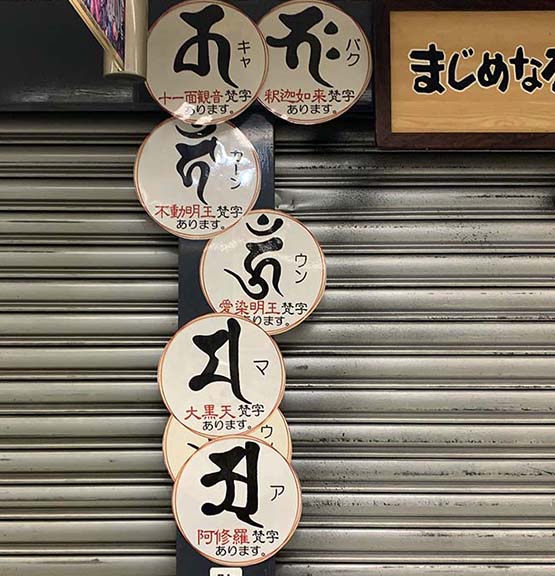 キャ
十一面観音梵字
あります。
バク
釈迦如来梵字
あります。
まじめな
カーン
不動明王梵字
あります。
ウン
愛染明王梵字
ります。
マ
大黒天梵字
あります。
ウ
ア
阿修羅梵字
あります。